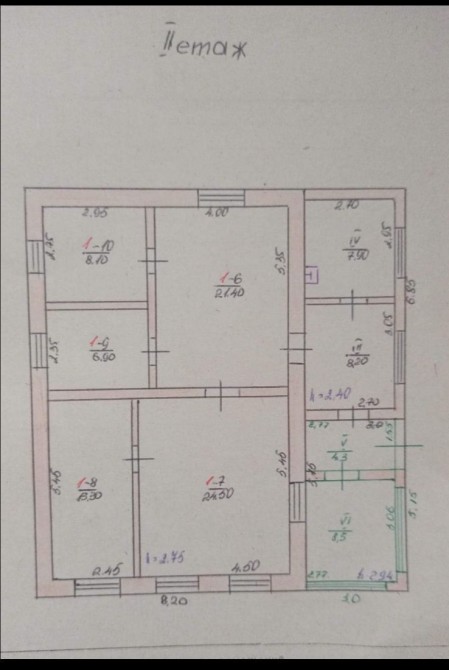 II этаж
2.95
4.00
2.70
2.75
1-10
8.10
1-6
21.40
5.35
IV
7.90
2.95
6.85
2.35
1-9
6.90
3.05
8.20
h=2.40
2.70
2.77
V
4.3
1.55
5.45
1-8
13.30
1-7
24.50
5.45
VI
8.5
3.06
5.15
h=2.75
2.45
4.50
2.77
h-2.94
8.20
3.0